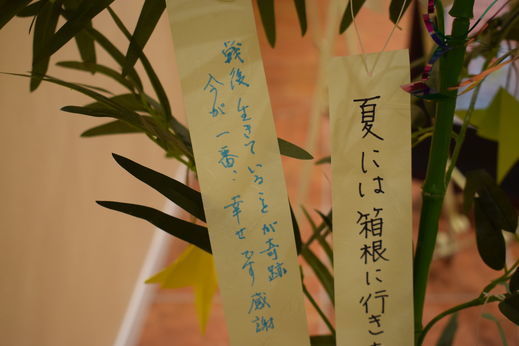 夏には箱根に行きま
戦後生きていることが奇跡
今が一番、幸せです感謝